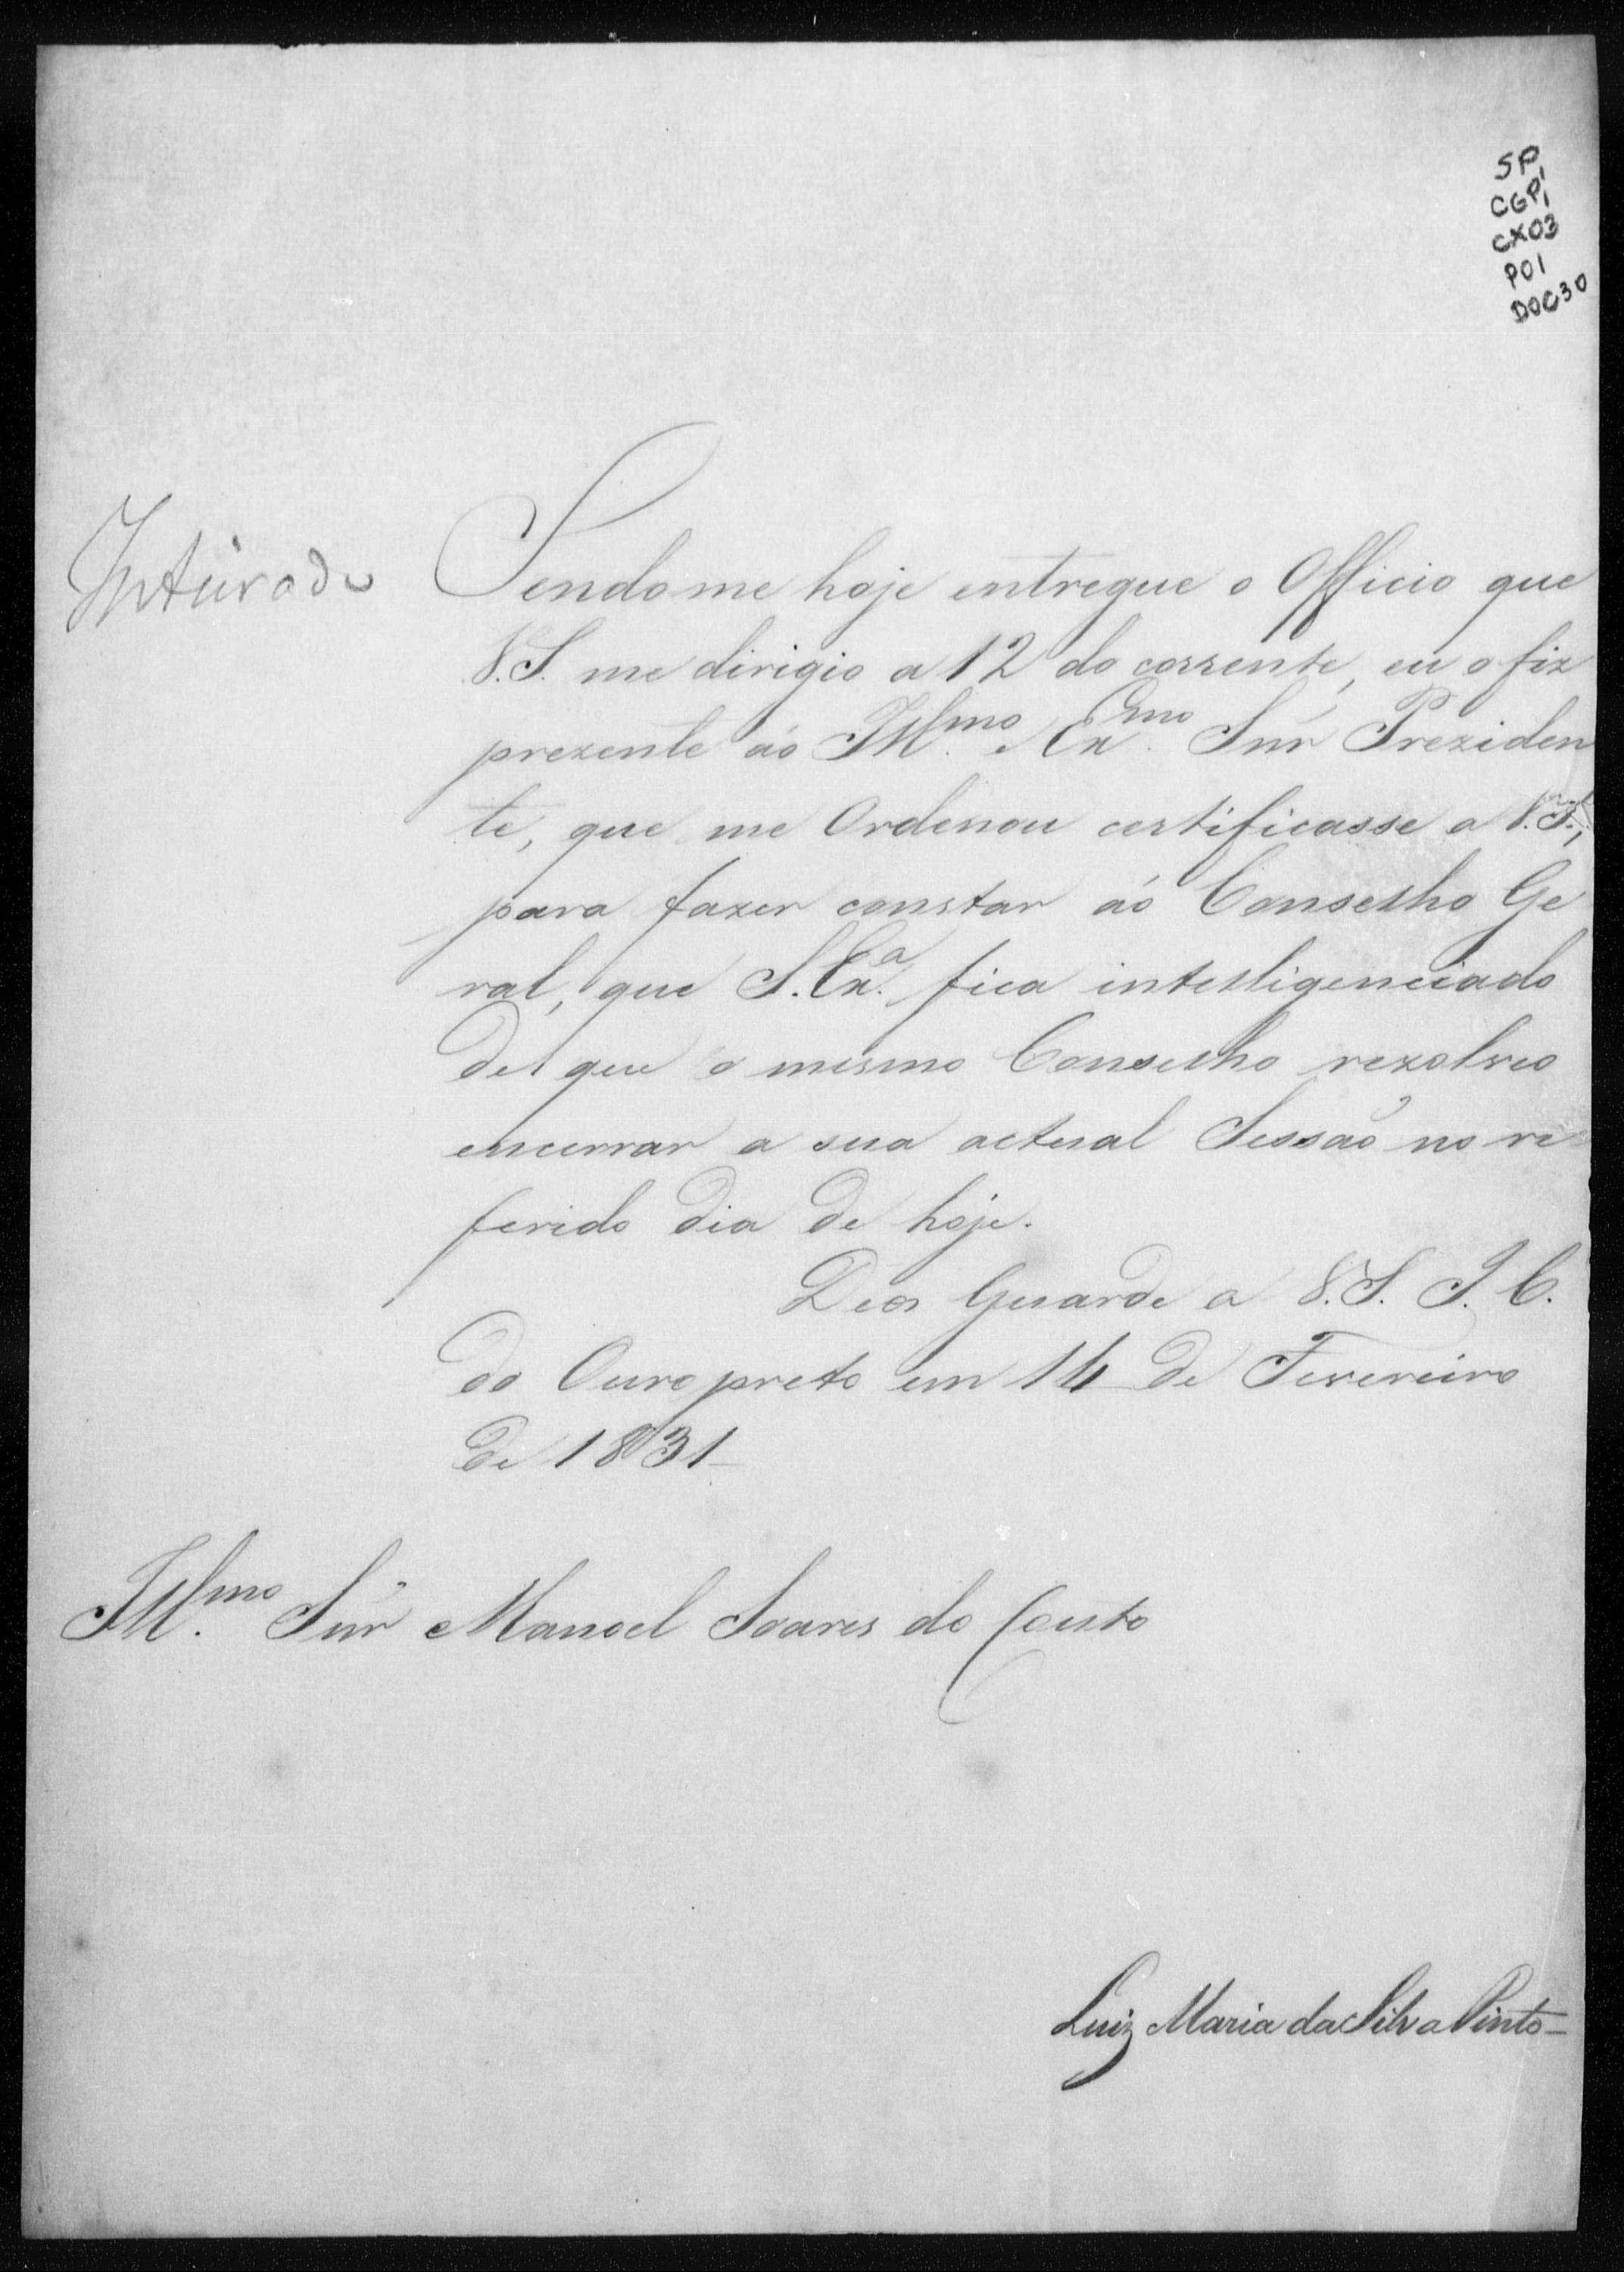 SP,
CGP1,
CX03
P01
DOC30
Inteirado
Sendome hoje entregue o Officio que
V.S. me dirigio a 12 do corrente, eu o fiz
prezente áo Ill.mo e Ex.mo Snr Preziden
te, que me Ordenou certificasse a V.S.,
para fazer constar áo Conselho Ge
ral, que S. Ex.a fica intelligenciado
de que o mesmo Conselho rezolveo
encerrar a sua actual Sessão no re
ferido dia de hoje.
Deos Guarde a V.S. I. C.
do Ouro preto em 14 de Fevereiro
de 1831
Ill.mo Snr Manoel Soares do Couto
Luiz Maria da Silva Pinto